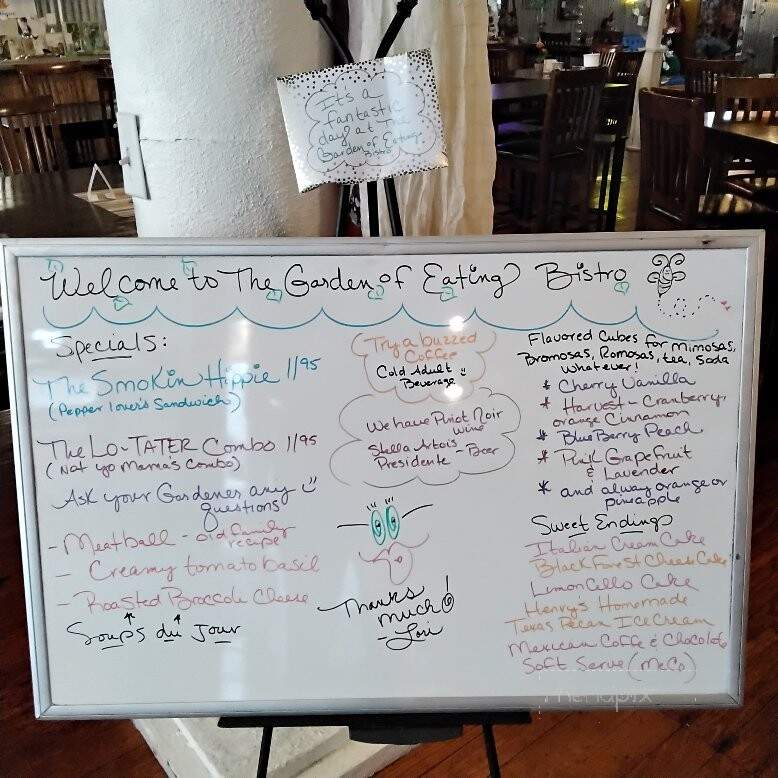 It's a
fantastic
day at The
Garden of Eating
Bistro
Welcome to The Garden of Eating Bistro
Specials:
The Smokin Hippie 11/95
(Pepper lover's Sandwich)
The Lo-TATER Combo 11/95
(Not yo mama's combo)
Ask your Gardener any
questions
- Meatball - old family
recipe
- Creamy tomato basil
- Roasted Broccoli Cheese
Soups du Jour
Try a buzzed
Coffee
Cold Adult
Beverage
We have Pinot Noir
wine
Stella Artois
Presidente - Beer
Thanks
much!
- Lori
Flavored Cubes for mimosas,
Bromosas, Romosas, tea, soda
whatever!
* Cherry Vanilla
* Harvest - Cranberry,
orange Cinnamon
* BlueBerry Peach
* Pink GrapeFruit
& Lavender
* and alway orange or
pineapple
Sweet Endings
Italian Cream Cake
Black Forest Cheese Cake
LimonCillo Cake
Henry's Homemade
Texas Pecan Ice Cream
Mexican Coffe & Chocolate
Soft Serve (MeCo)
menupix